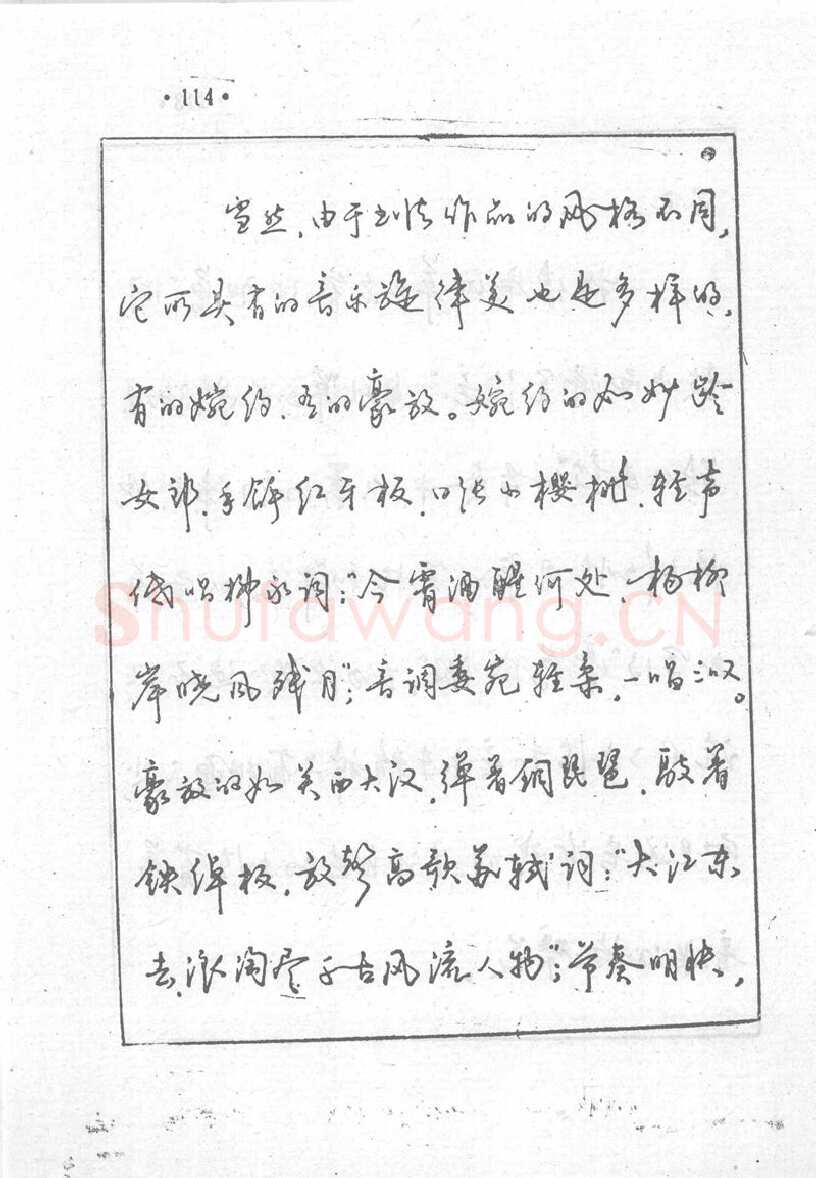 ·114·
当然，由于书法作品的风格不同，
它所具有的音乐旋律美也是多样的，
有的婉约、有的豪放。婉约的如妙龄
女郎，手饰红牙板，口张小樱桃，轻声
低唱柳永词：“今宵酒醒何处，杨柳
岸晓风残月”；音调委宛轻柔，一唱三叹。
豪放的如关西大汉，弹着铜琵琶，敲着
铁绰板，放声高歌苏轼词：“大江东
去，浪淘尽千古风流人物”；节奏明快，
Shufawang.CN